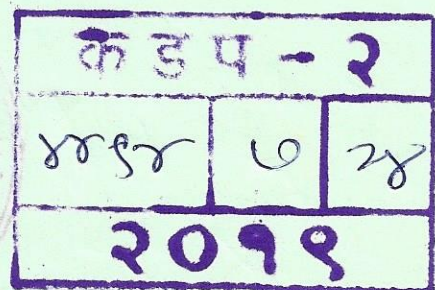 कडप - २
४४९४ ७ २४
२०१९